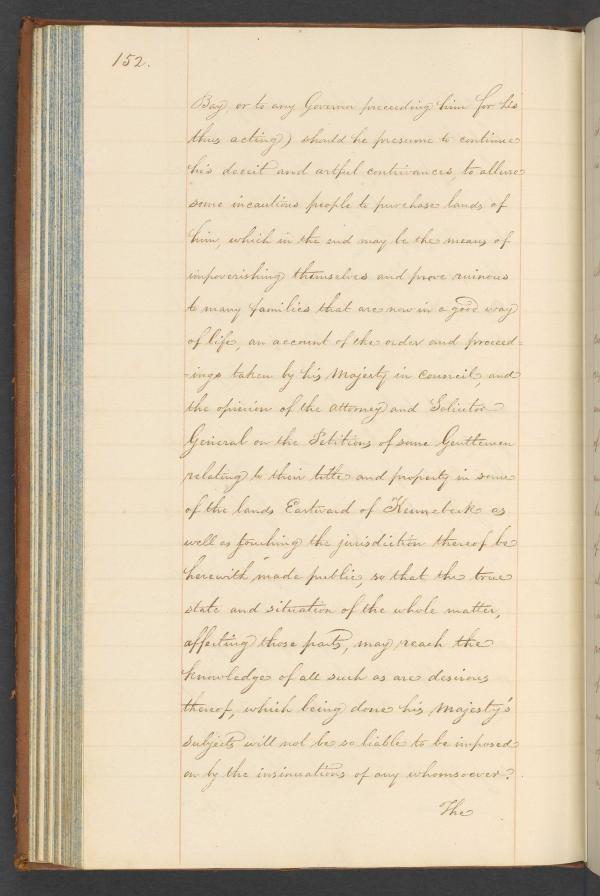 152.
Bay, or to any Governor preceeding him for his
thus acting) should he presume to continue
his deceit and artful contrivances, to allure
some incautious people to purchase lands of
him, which in the end may be the means of
impoverishing themselves and prove ruinous
to many families that are now in a good way
of life, an account of the order and proceed=
=ings taken by his Majesty in council, and
the opinion of the Attorney and Solicitor
General on the Petitions of some Gentlemen
relating to their title and property in some
of the lands Eastward of Kennebeck as
well as touching the jurisdiction thereof be
herewith made public, so that the true
state and situation of the whole matter,
affecting those parts, may reach the
knowledge of all such as are desirous
thereof, which being done his Majesty's
subjects will not be so liable to be imposed
on by the insinuations of any whomsoever.
The